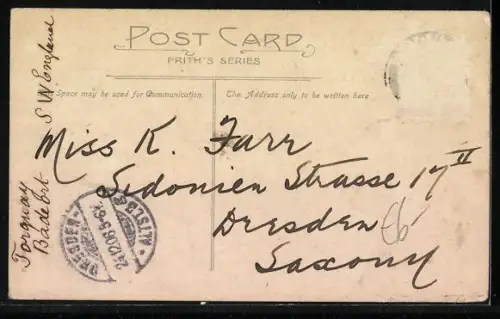 POST CARD
FRITH'S SERIES
Space may be used for Communication.
The Address only to be written here
Miss K. Farr
Sidonien Strasse 17 II
Dresden
Saxony
Torquay S W England
Badeort
DRESDEN-ALTST.
24.12.06.5-6N.